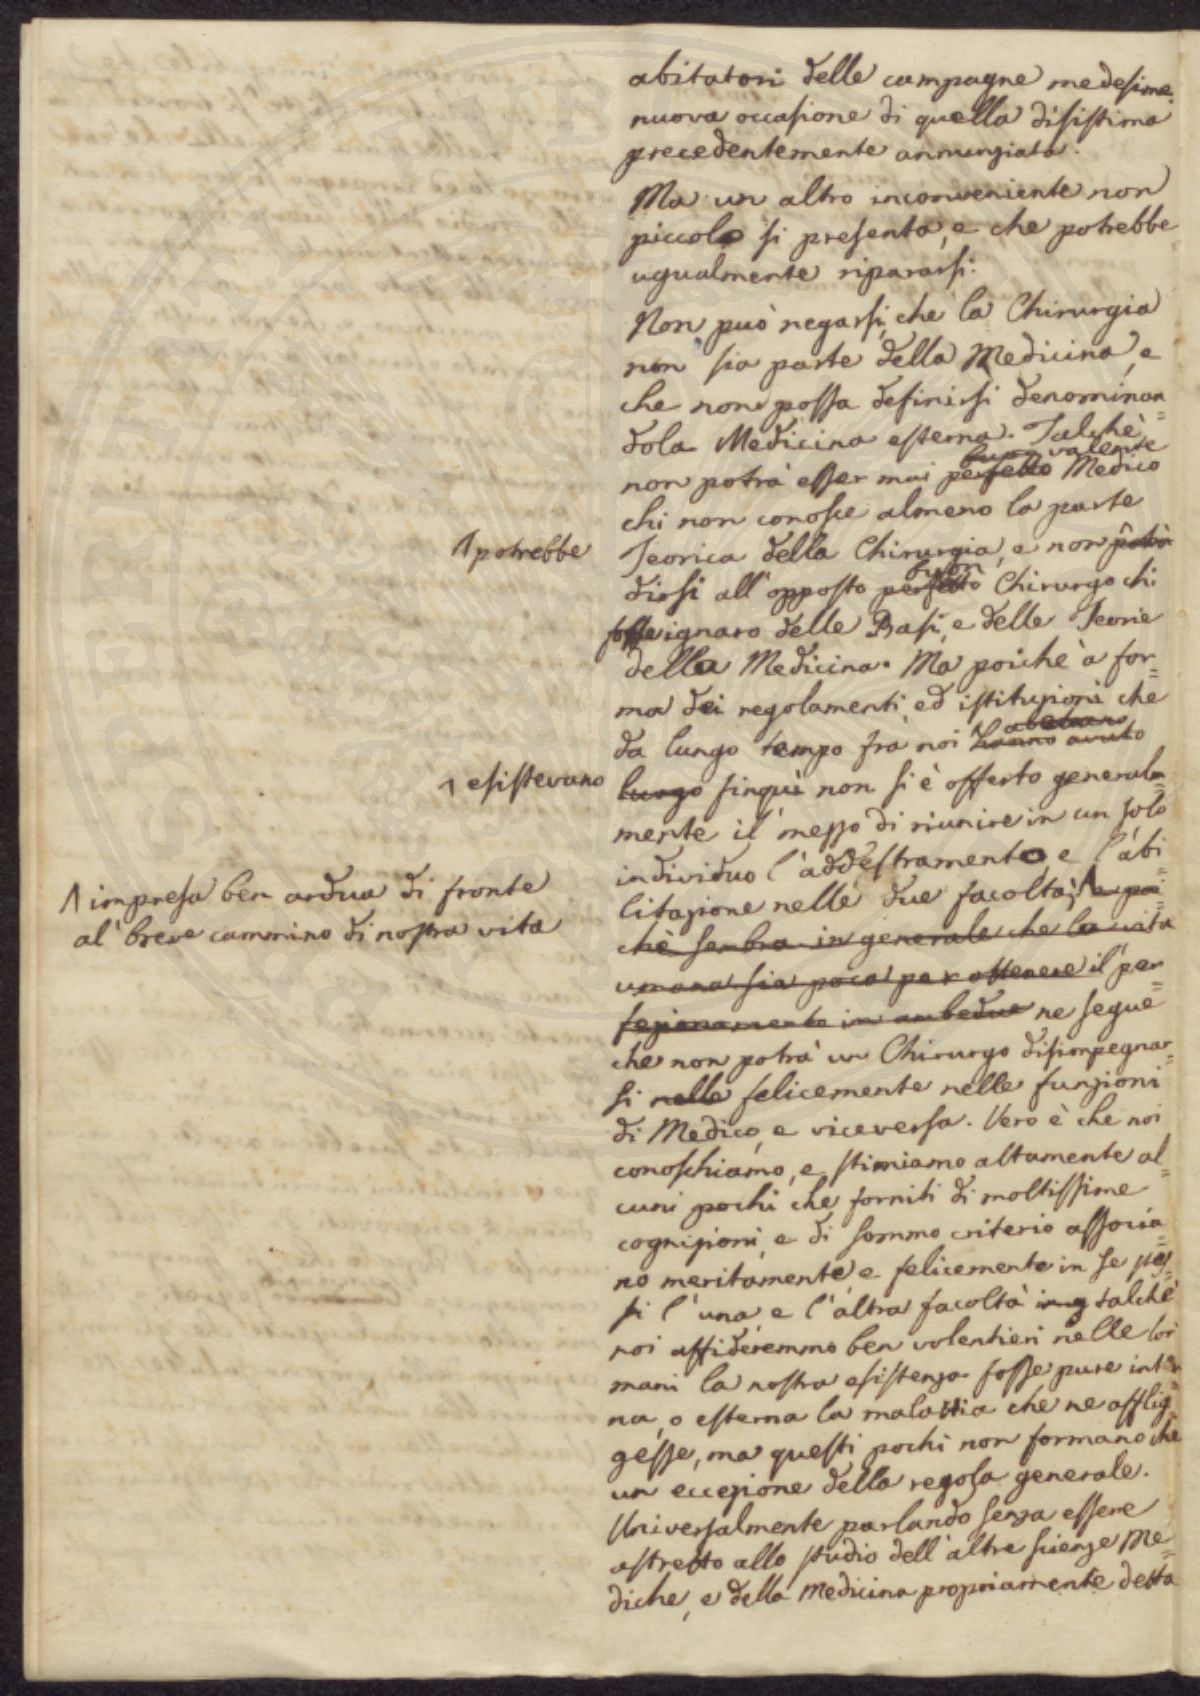 abitatori delle campagne medesime
nuova occasione di quella disistima
precedentemente annunziata.
Ma un altro inconveniente non
piccolo si presenta, e che potrebbe
ugualmente ripararsi.
Non può negarsi, che la Chirurgia
non sia parte della Medicina, e
che non possa definirsi denominan=
dola Medicina esterna. Talchè
buon valente
non potrà esser mai perfetto Medico
chi non conosce almeno la parte
Teorica della Chirurgia, e non potrà
1 potrebbe
buon
dirsi all'opposto perfetto Chirurgo chi
fosse ignaro delle Basi, e delle Teorie
della Medicina. Ma poichè a for=
ma dei regolamenti, ed istituzioni che
da lungo tempo fra noi hanno avuto
1 esistevano
luogo sinquì non si è offerto general=
mente il mezzo di riunire in un solo
individuo l'addestramento e l'abi=
litazione nelle due facoltà, e poi=
1 impresa ben ardua di fronte
al breve cammino di nostra vita
chè sembra in generale che la vita
umana sia poca per ottenere il per=
fezionamento in ambedue ne segue
che non potrà un Chirurgo disimpegnar=
si nelle felicemente nelle funzioni
di Medico, e viceversa. Vero è che noi
conoschiamo, e stimiamo altamente al=
cuni pochi che forniti di moltissime
cognizioni, e di sommo criterio associa=
no meritamente e felicemente in se stes=
si l'una, e l'altra facoltà talchè
noi affideremmo ben volentieri nelle lor
mani la nostra esistenza fosse pure inter=
na, o esterna la malattia che ne afflig=
gesse, ma questi pochi non formano che
un eccezione della regola generale.
Universalmente parlando senza essere
astretto allo studio dell'altre scienze Me=
diche, e della Medicina propriamente detta